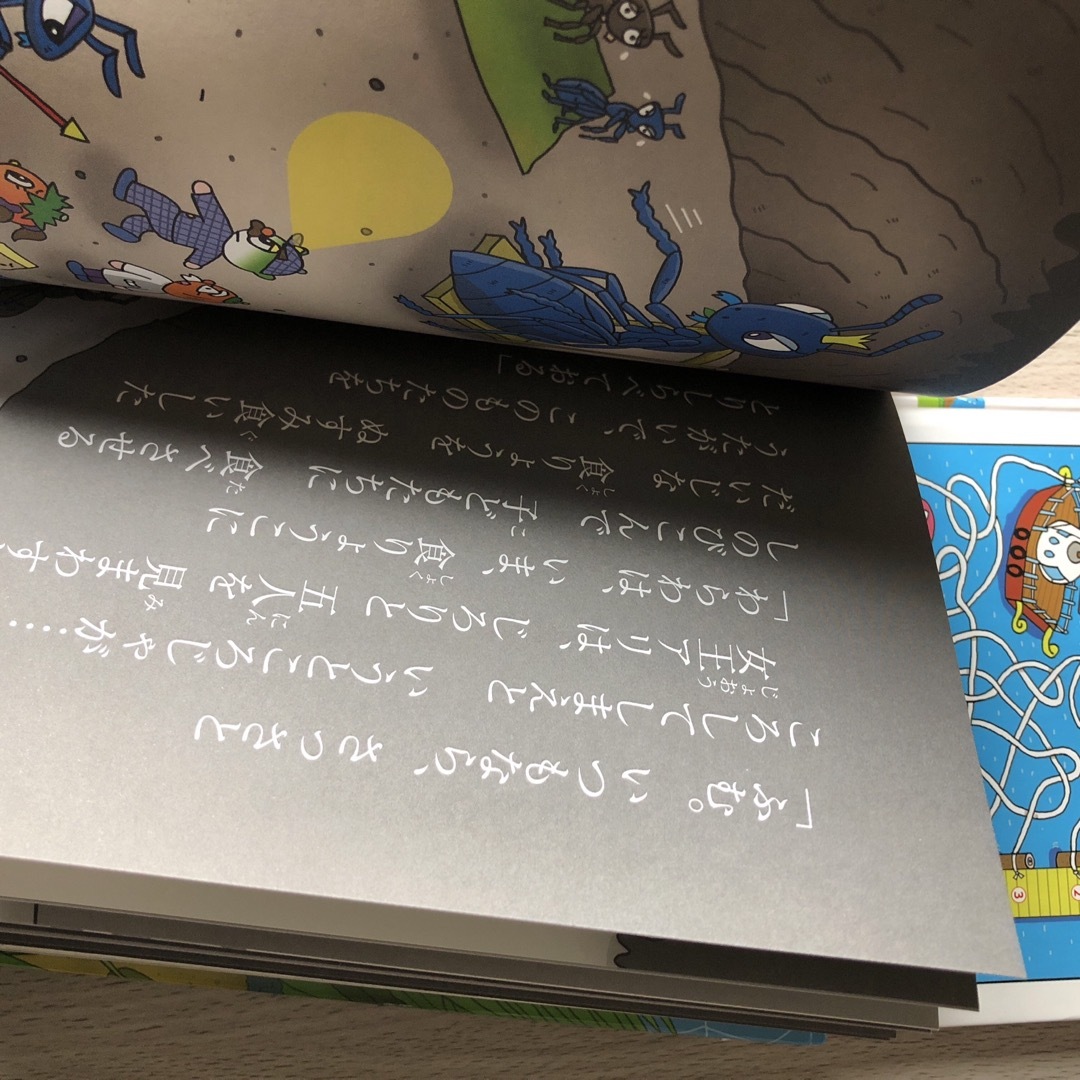 「ふむ。いつもなら、さっさと
ころしてしまえと いうところじゃが……
女王アリは、じろりと 五人を 見まわす
「わらわは、いま、食りょうこに
しのびこんで 子どもたちに 食べさせる
だいじな 食りょうを ぬすみ食いした
うたがいで、このものたちを
とりしらべておる」
3
2